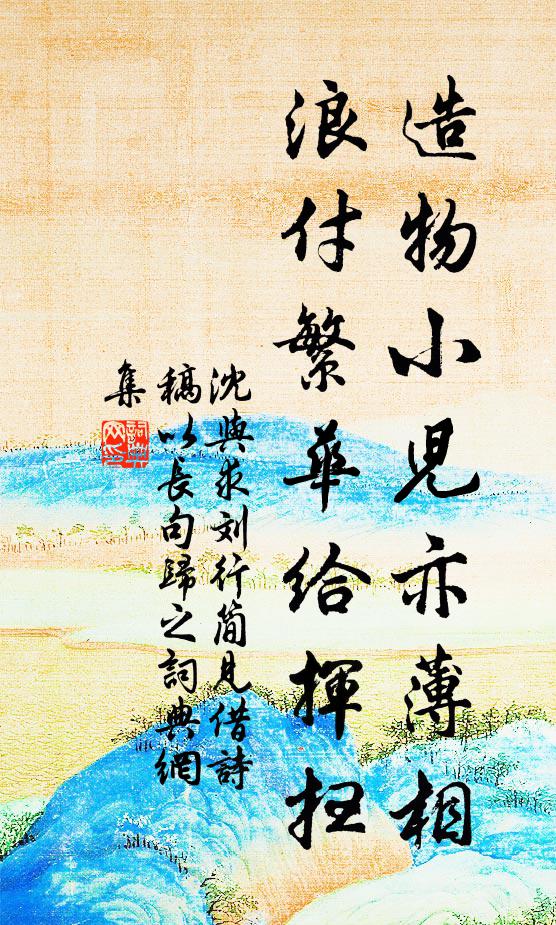 造物小児亦薄相
浪付繁華給揮扭
沈與求刘行簡見借詩
稿以長句歸之詞典網
集